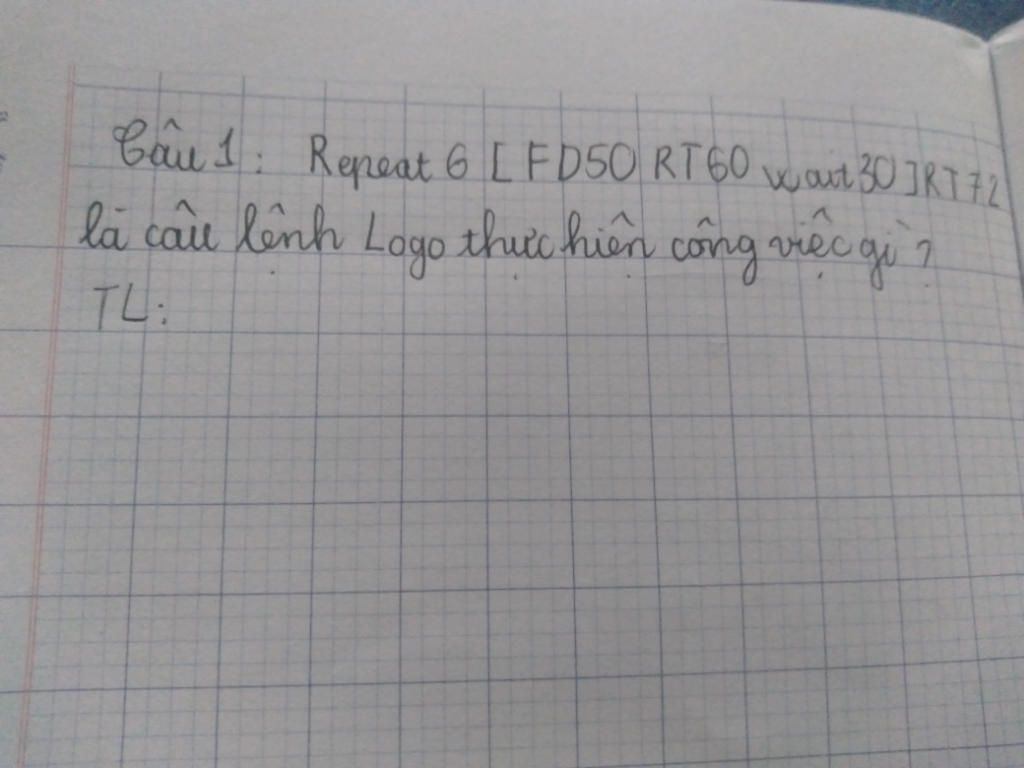 Câu 1: Repeat 6 [ FD50 RT60 wait 30 ] RT72
là câu lệnh Logo thực hiện công việc gì ?
TL: